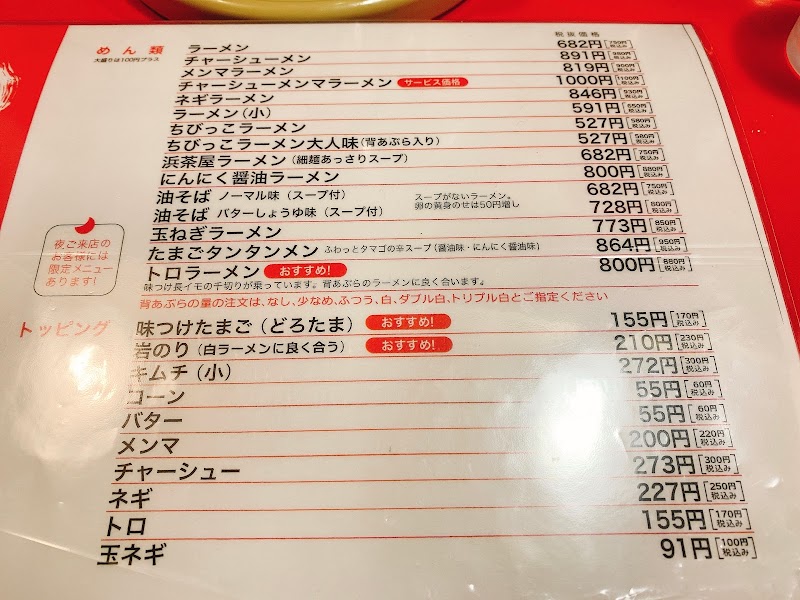 税抜価格
めん類
大盛りは100円プラス
ラーメン 682円 [750円税込み]
チャーシューメン 891円 [980円税込み]
メンマラーメン 819円 [900円税込み]
チャーシューメンマラーメン サービス価格 1000円 [1100円税込み]
ネギラーメン 846円 [930円税込み]
ラーメン(小) 591円 [650円税込み]
ちびっこラーメン 527円 [580円税込み]
ちびっこラーメン大人味(背あぶら入り) 527円 [580円税込み]
浜茶屋ラーメン(細麺あっさりスープ) 682円 [750円税込み]
にんにく醤油ラーメン 800円 [880円税込み]
油そば ノーマル味(スープ付) 682円 [750円税込み]
スープがないラーメン。
卵の黄身のせは50円増し
油そば バターしょうゆ味(スープ付) 728円 [800円税込み]
玉ねぎラーメン 773円 [850円税込み]
たまごタンタンメン ふわっとタマゴの辛スープ(醤油味・にんにく醤油味) 864円 [950円税込み]
トロラーメン おすすめ! 800円 [880円税込み]
味つけ長イモの千切りが乗っています。背あぶらのラーメンに良く合います。
背あぶらの量の注文は、なし、少なめ、ふつう、白、ダブル白、トリプル白とご指定ください
夜ご来店の
お客様には
限定メニュー
あります!
トッピング
味つけたまご(どろたま) おすすめ! 155円 [170円税込み]
岩のり(白ラーメンに良く合う) おすすめ! 210円 [230円税込み]
キムチ(小) 272円 [300円税込み]
コーン 55円 [60円税込み]
バター 55円 [60円税込み]
メンマ 200円 [220円税込み]
チャーシュー 273円 [300円税込み]
ネギ 227円 [250円税込み]
トロ 155円 [170円税込み]
玉ネギ 91円 [100円税込み]